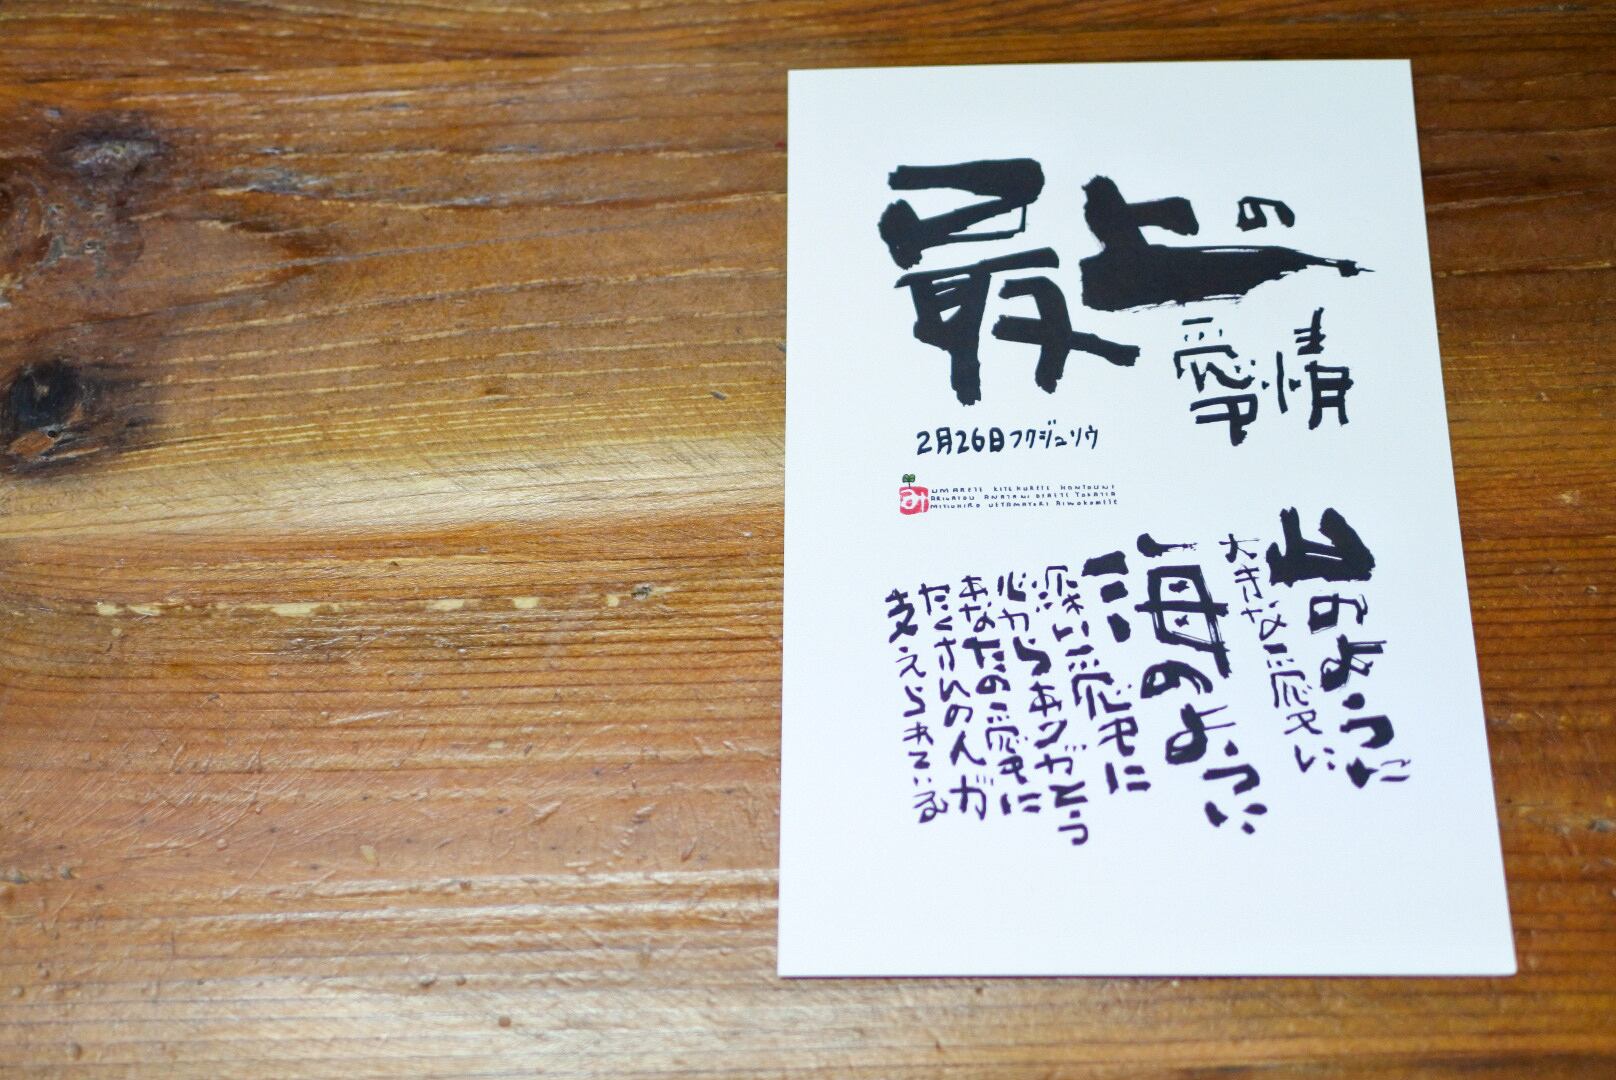 最上の
愛情
2月26日フクジュソウ
み
UMARETE KITEKURETE HONTOUNI
ARIGATOU ANATANI DEAETE YOKATTA
山のように
大きな愛に
海のように
深い愛に
心からありがとう
あなたの愛に
たくさんの人が
支えられている